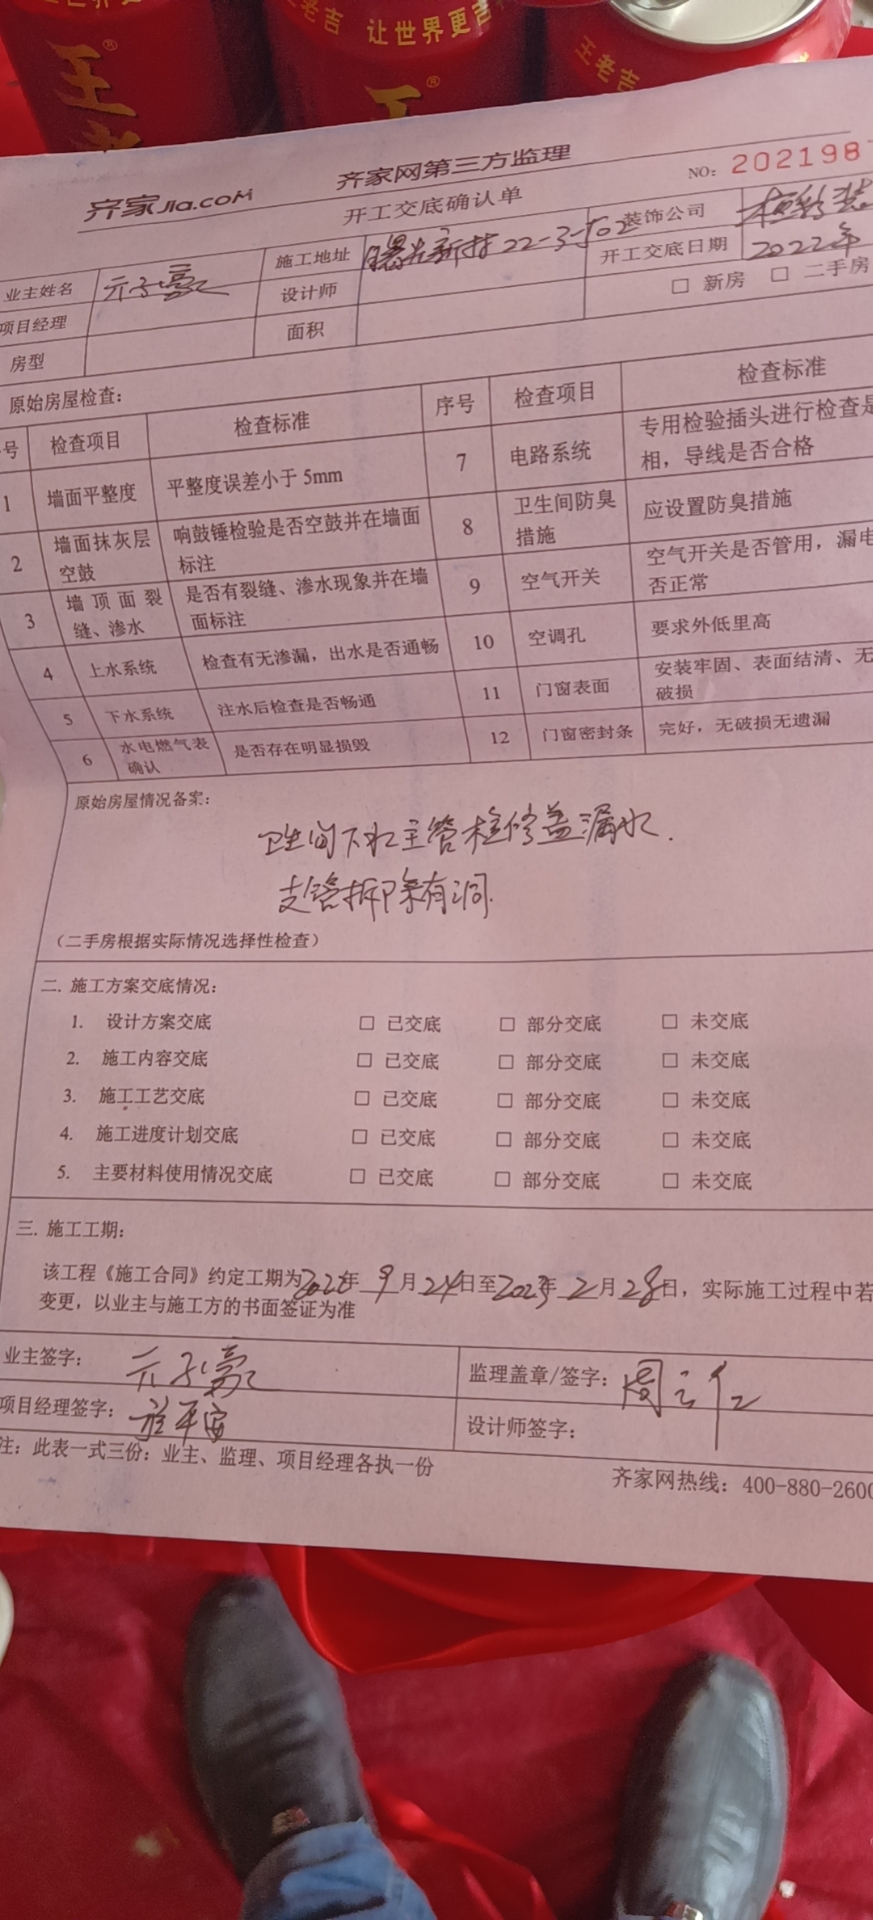 王老吉 让世界更吉 王老吉
王 王
齐家Jia.com 齐家网第三方监理 NO: 2021987
开工交底确认单
业主姓名 亓子豪 施工地址 曙光新村22-3-502 装饰公司
项目经理 设计师 开工交底日期 2022年
房型 面积 □ 新房 □ 二手房
原始房屋检查:
号 检查项目 检查标准 序号 检查项目 检查标准
1 墙面平整度 平整度误差小于 5mm 7 电路系统 专用检验插头进行检查是
相，导线是否合格
2 墙面抹灰层空鼓 响鼓锤检验是否空鼓并在墙面标注 8 卫生间防臭措施 应设置防臭措施
3 墙顶面裂缝、渗水 是否有裂缝、渗水现象并在墙面标注 9 空气开关 空气开关是否管用，漏电
否正常
4 上水系统 检查有无渗漏，出水是否通畅 10 空调孔 要求外低里高
5 下水系统 注水后检查是否畅通 11 门窗表面 安装牢固、表面结清、无
破损
6 水电燃气表确认 是否存在明显损毁 12 门窗密封条 完好，无破损无遗漏
原始房屋情况备案:
卫生间下水主管检修盖漏水.
支管拆除有洞.
（二手房根据实际情况选择性检查）
二. 施工方案交底情况:
1. 设计方案交底 □ 已交底 □ 部分交底 □ 未交底
2. 施工内容交底 □ 已交底 □ 部分交底 □ 未交底
3. 施工工艺交底 □ 已交底 □ 部分交底 □ 未交底
4. 施工进度计划交底 □ 已交底 □ 部分交底 □ 未交底
5. 主要材料使用情况交底 □ 已交底 □ 部分交底 □ 未交底
三. 施工工期:
该工程《施工合同》约定工期为2022年 9 月 24日至2023年 2 月 28日，实际施工过程中若
变更，以业主与施工方的书面签证为准
业主签字: 亓子豪 监理盖章/签字:
项目经理签字: 设计师签字:
注: 此表一式三份: 业主、监理、项目经理各执一份
齐家网热线: 400-880-2600